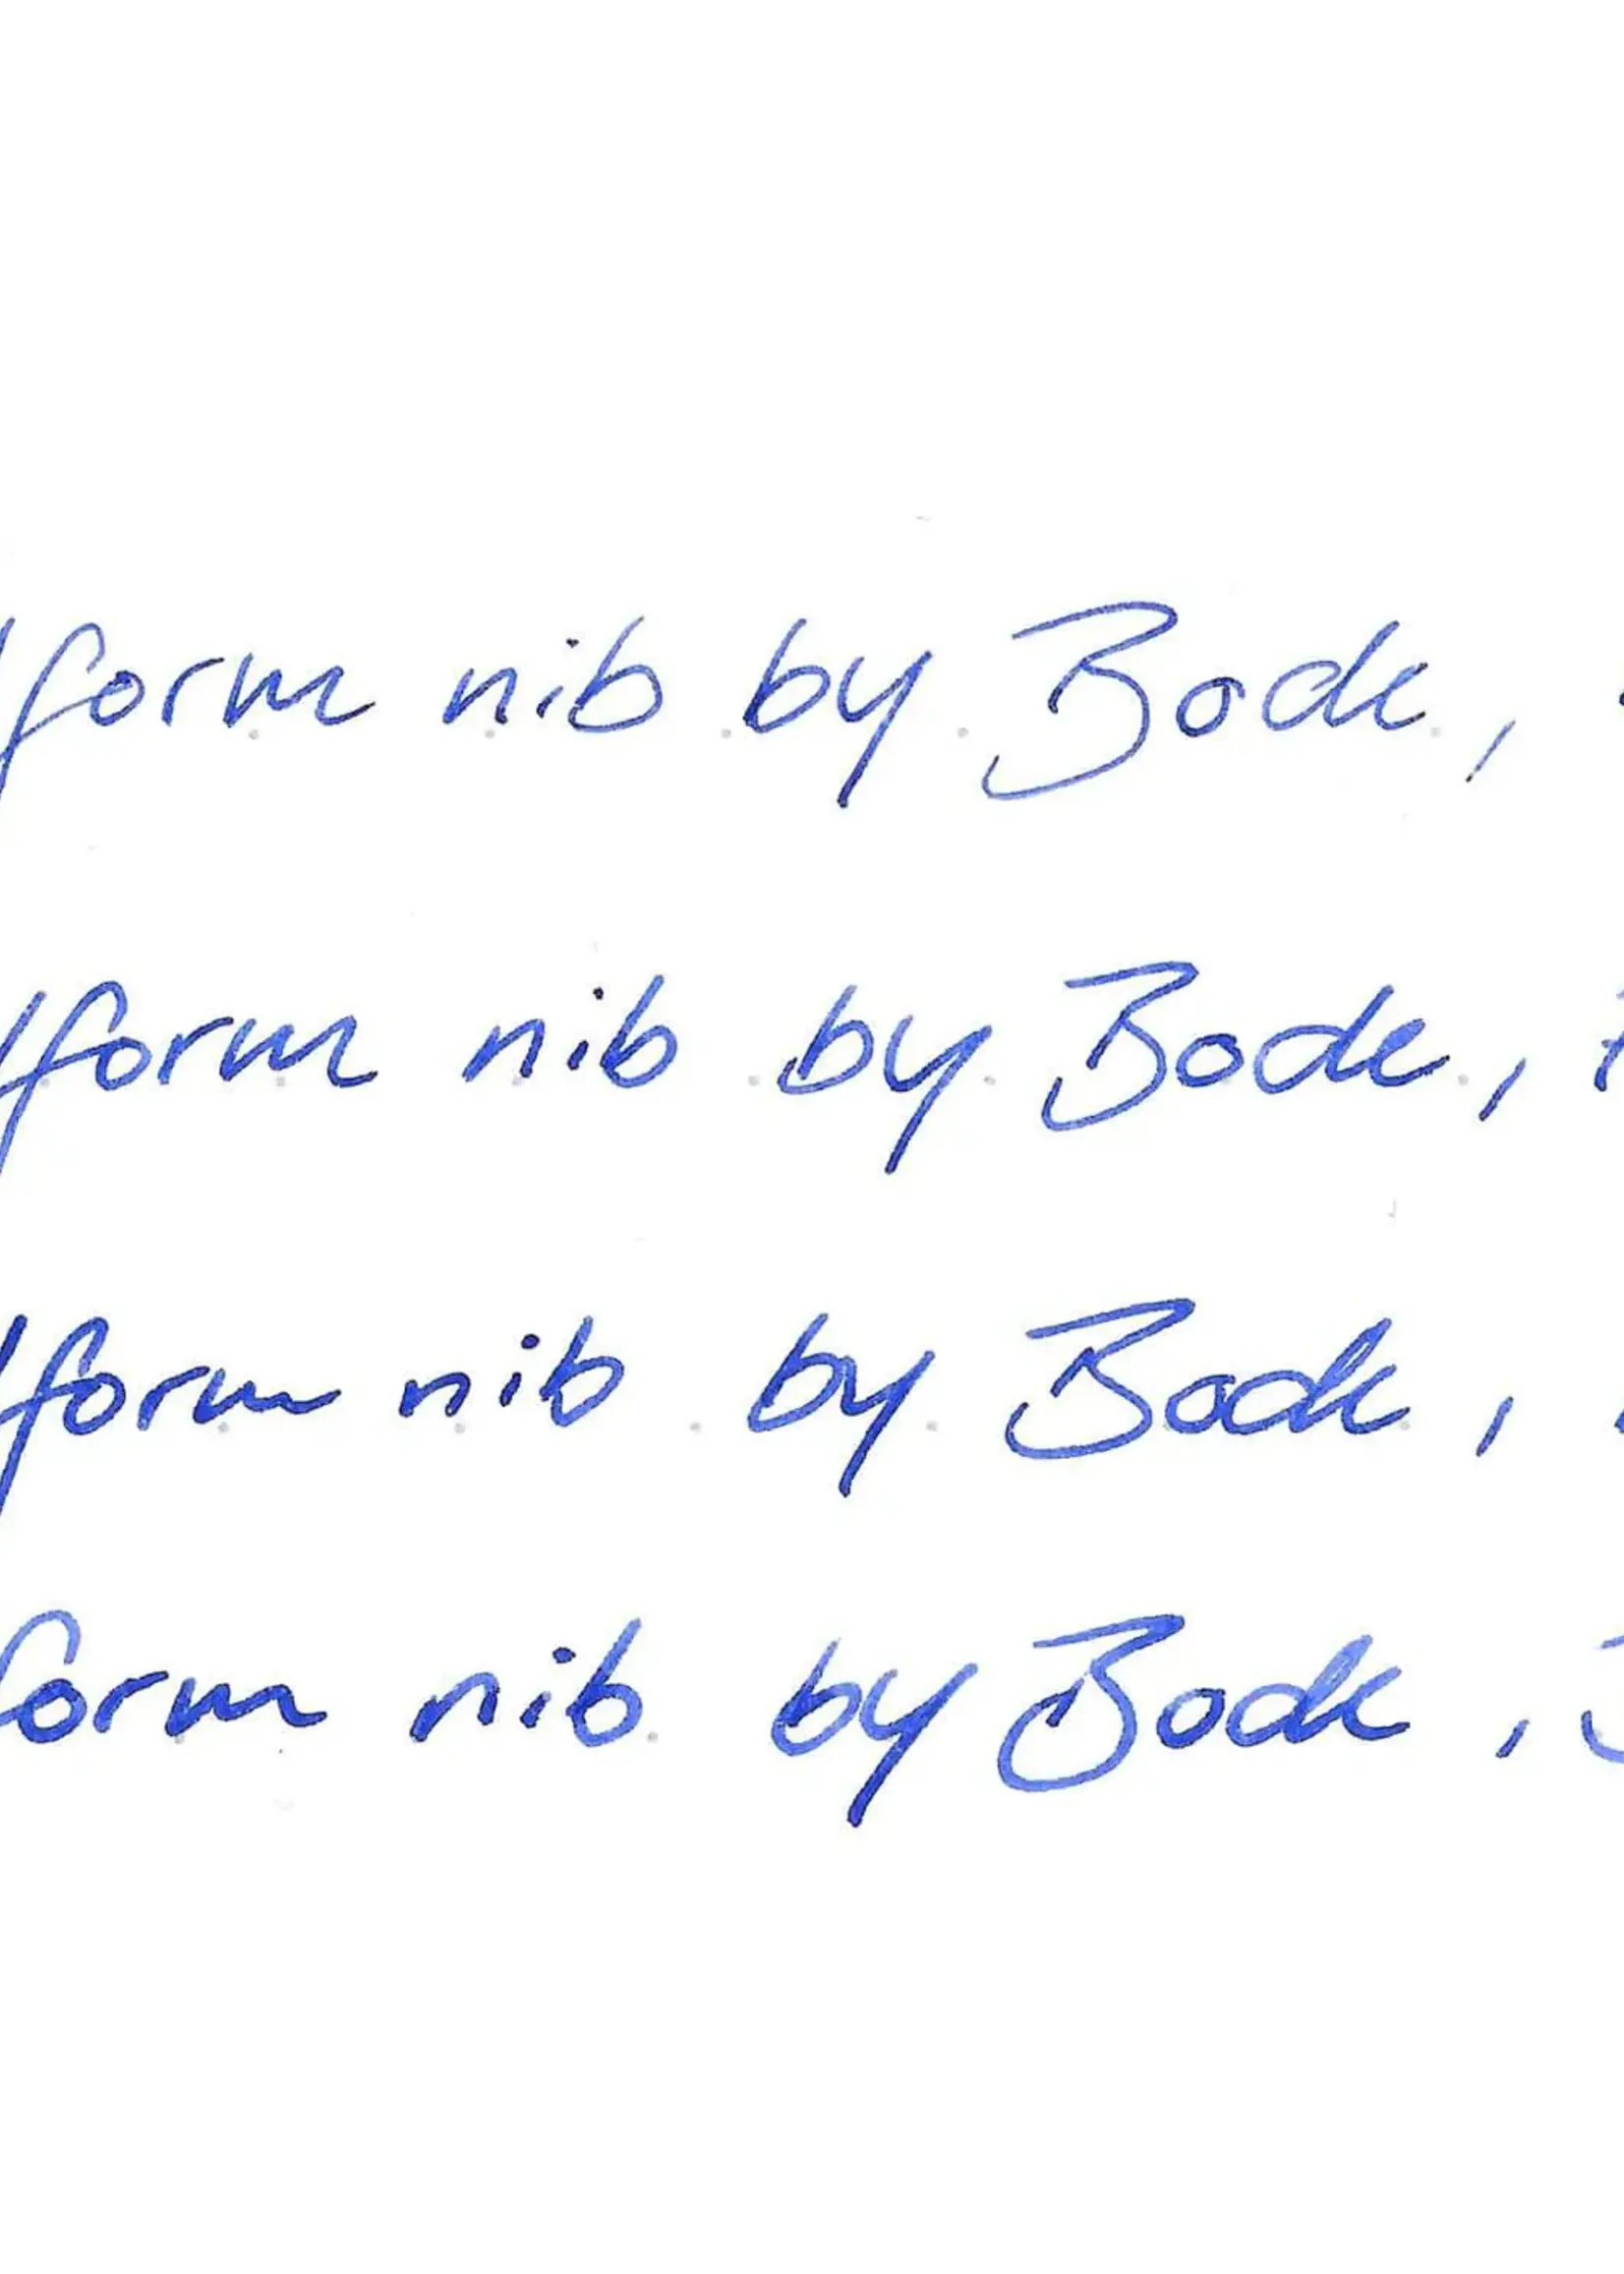 form nib by Bock,
form nib by Bock,
form nib by Bock,
form nib by Bock,